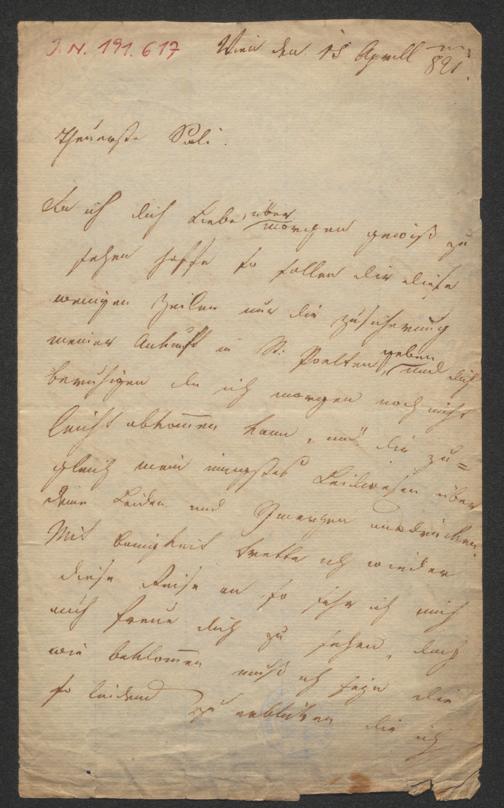 I. N. 191.617
Wien den 15 Aprill 821.
Theuerste Sali.
Da ich dich Liebe, über
morgen gewiß zu
sehen hoffe so sollen dir diese
wenigen Zeilen nur die zusicherung
meiner Ankunft in St. Poelten geben und dich
beruhigen da ich morgen noch nicht
leicht abkommen kann, und dir zu=
gleich mein innigstes Leidwesen über
deine Leiden und Schmerzen ausdrücken.
Mit Bangigkeit trette ich wieder
diese Reise an so sehr ich mich
auch freue dich zu sehen, doch
wie beklommen muß ich seyn die
so leidend zu erblicken die ich